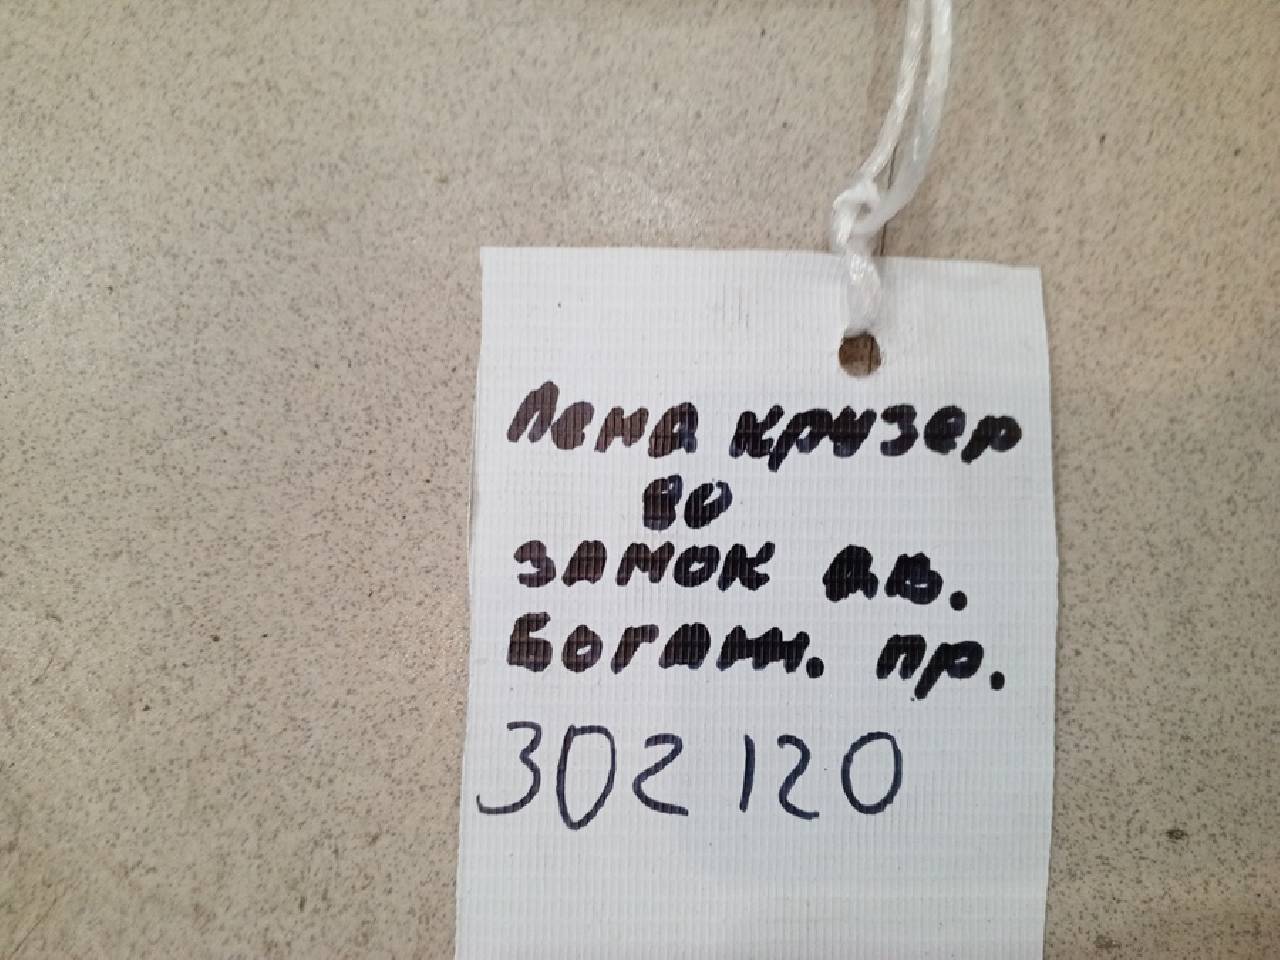 Ленд крузер
80
замок дв.
багажн. пр.
302120